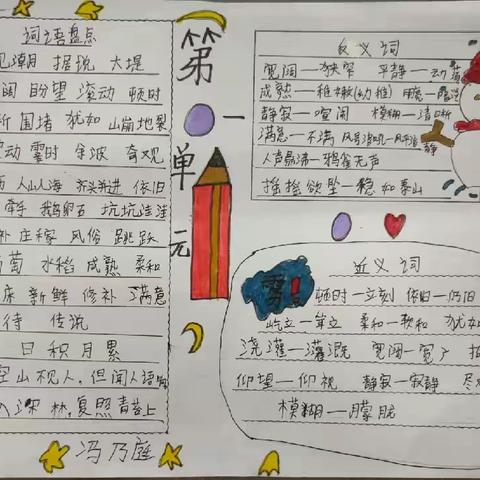 词语盘点
观潮 据说 大堤
阔 盼望 滚动 顿时
昕 围堵 犹如 山崩地裂
动 霎时 余波 奇观
人山人海 齐头并进 依旧
牵手 鹅卵石 坑坑洼洼
补 庄稼 风俗 跳跃
萄 水稻 成熟 柔和
床 新鲜 修补 满意
待 传说
日积月累
空山不见人,但闻人语响
入深林,复照青苔上
冯乃庭
第一单元
反义词
宽阔—狭窄 平静—动荡
成熟—稚嫩(幼稚)
静寂—喧闹 模糊—清晰
满意—不满 风号浪吼—风平浪静
人声鼎沸—鸦雀无声
摇摇欲坠—稳如泰山
近义词
顿时—立刻 依旧—仍旧
屹立—耸立 柔和—软和 犹如
浇灌—灌溉 宽阔—宽广
仰望—仰视 静寂—寂静 尽
模糊—朦胧